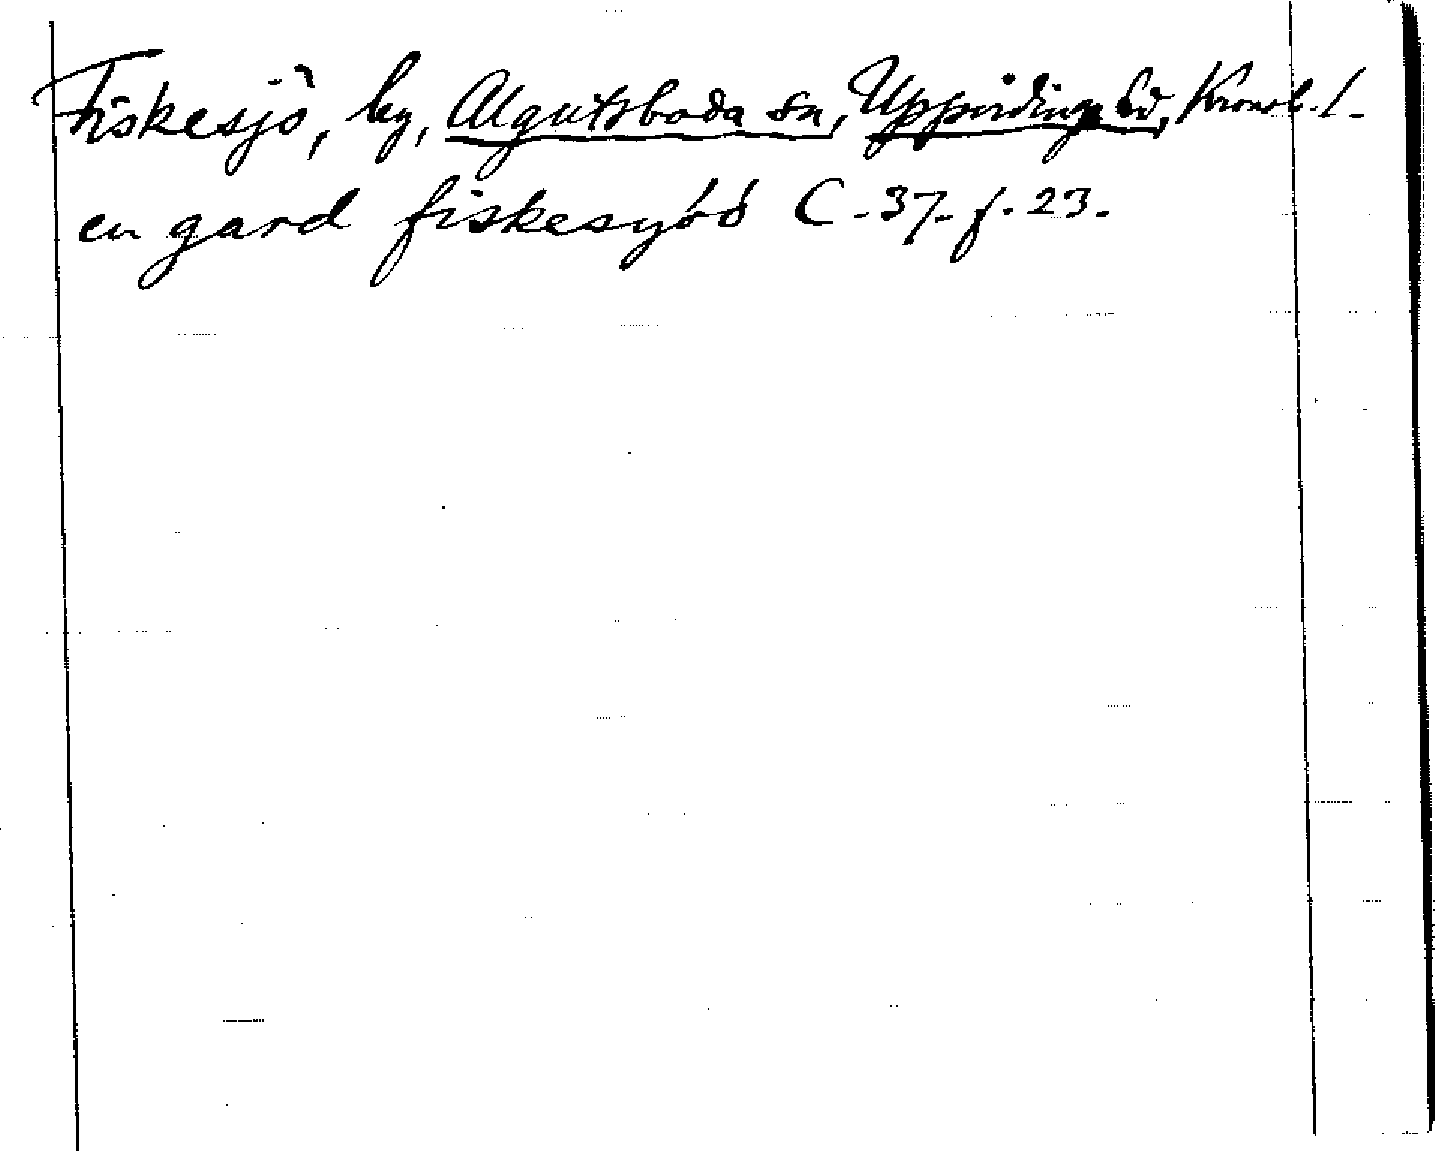 Fiskesjö, by, Algutsboda sn, Uppvidinge hd, Kronob. l.
en gard fiskesyöö C-37. f. 23.